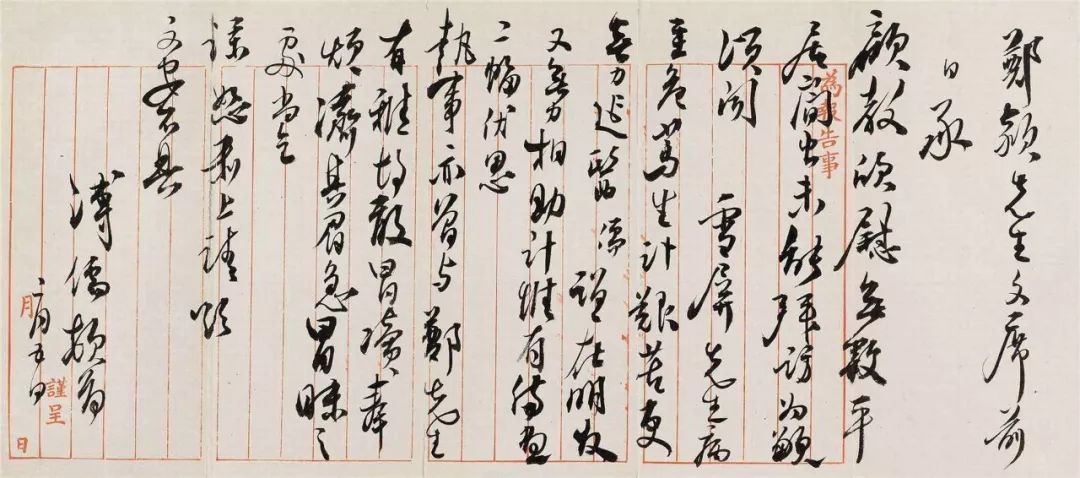 鄭穎先生文席前
日承
顧教欣慰無數平
居簡出未能拜訪为歉
為報告事
頃聞 雪屏先生病
重危篤生計艱苦更
無力延醫 儒誼在朋友
又無力相助計惟有待畫
二幅伏思
執事亦曾与鄭先生
有雅故敢冒瀆奉
煩濟其眉急冒昧之
處尚乞
諒恕肅上請頌
文安不具
溥儒頓首
二月五日
謹呈
月
日